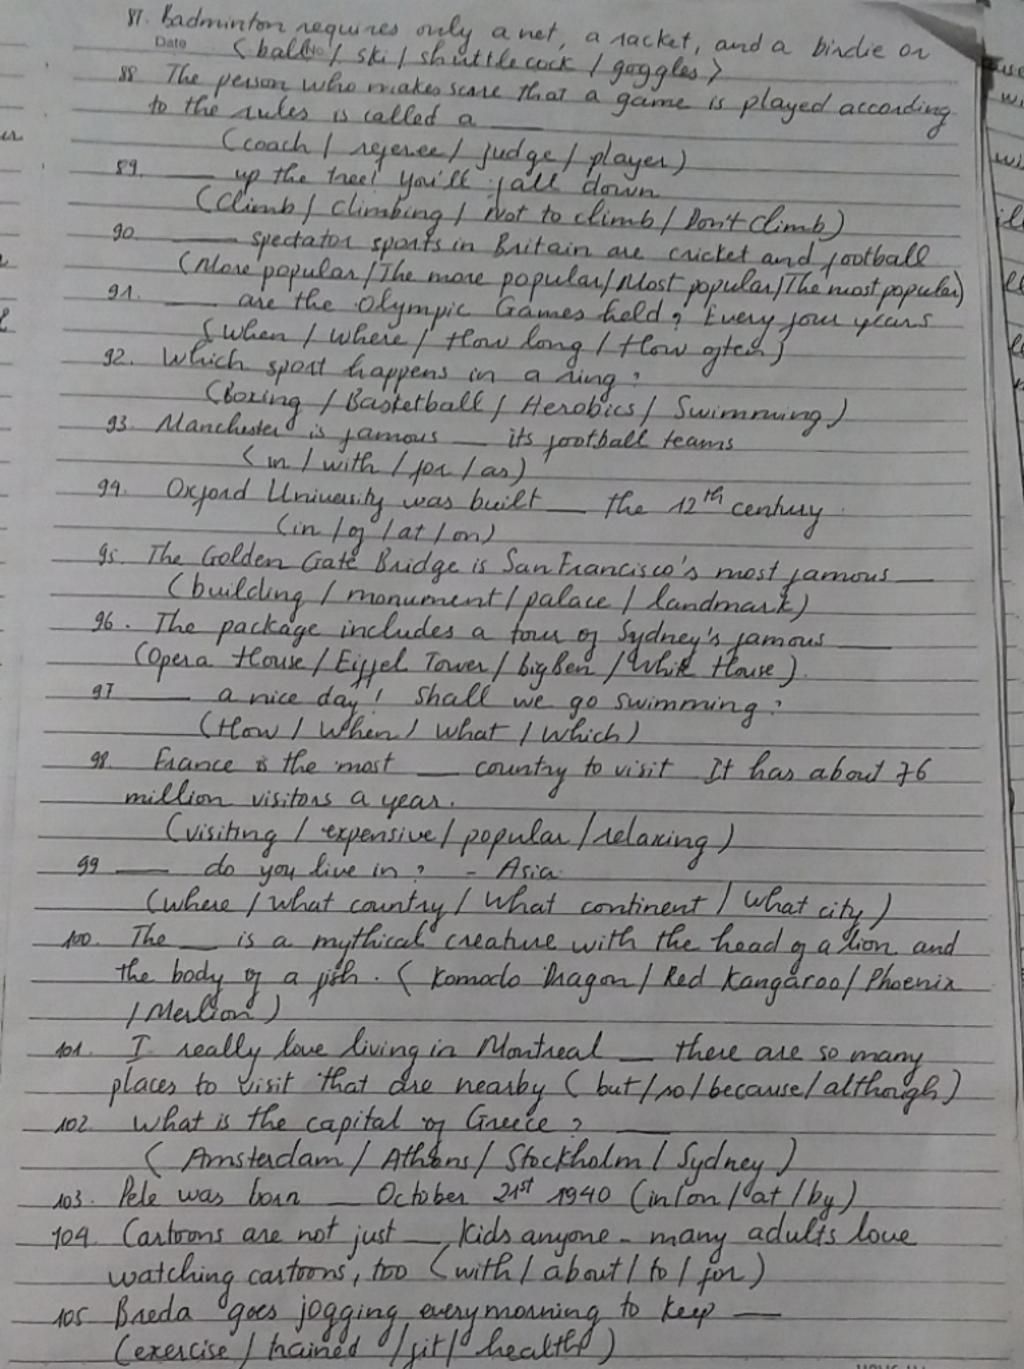 87. Badminton requires only a net, a racket, and a birdie or
Date
(ball / ski / shuttlecock / goggles)
88 The person who makes sure that a game is played according
to the rules is called a ___
(coach / referee / judge / player)
89. ___ up the tree! You'll fall down
(Climb / climbing / Not to climb / Don't climb)
90. ___ spectator sports in Britain are cricket and football
(More popular / The more popular / Most popular / The most popular)
91. ___ are the Olympic Games held? Every four years
(When / Where / How long / How often)
92. Which sport happens in a ring?
(Boxing / Basketball / Aerobics / Swimming)
93. Manchester is famous ___ its football teams
(in / with / for / as)
94. Oxford University was built ___ the 12th century
(in / of / at / on)
95. The Golden Gate Bridge is San Francisco's most famous ___
(building / monument / palace / landmark)
96. The package includes a tour of Sydney's famous ___
(Opera House / Eiffel Tower / big Ben / White House)
97 ___ a nice day! Shall we go swimming?
(How / When / What / Which)
98. France is the most ___ country to visit It has about 76
million visitors a year.
(visiting / expensive / popular / relaxing)
99 ___ do you live in? - Asia
(Where / What country / What continent / What city)
100. The ___ is a mythical creature with the head of a lion and
the body of a fish. (Komodo Dragon / Red Kangaroo / Phoenix
/ Merlion)
101. I really love living in Montreal ___ there are so many
places to visit that are nearby (but / so / because / although)
102. What is the capital of Greece? ___
(Amsterdam / Athens / Stockholm / Sydney)
103. Pele was born ___ October 21st 1940 (in / on / at / by)
104. Cartoons are not just ___ kids anyone - many adults love
watching cartoons, too (with / about / to / for)
105 Breda goes jogging every morning to keep ___
(exercise / trained / fit / health)